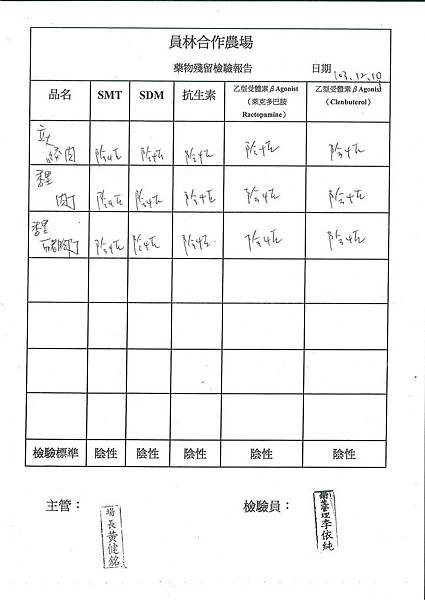 員林合作農場
藥物殘留檢驗報告 日期 103.12.10
品名 SMT SDM 抗生素 乙型受體素βAgonist（萊克多巴胺 Ractopamine） 乙型受體素βAgonist（Clenbuterol）
絞肉 陰性 陰性 陰性 陰性 陰性
肉丁 陰性 陰性 陰性 陰性 陰性
豬腳丁 陰性 陰性 陰性 陰性 陰性
檢驗標準 陰性 陰性 陰性 陰性 陰性
主管： 檢驗員：
場長黃健銘
衛生管理李依純